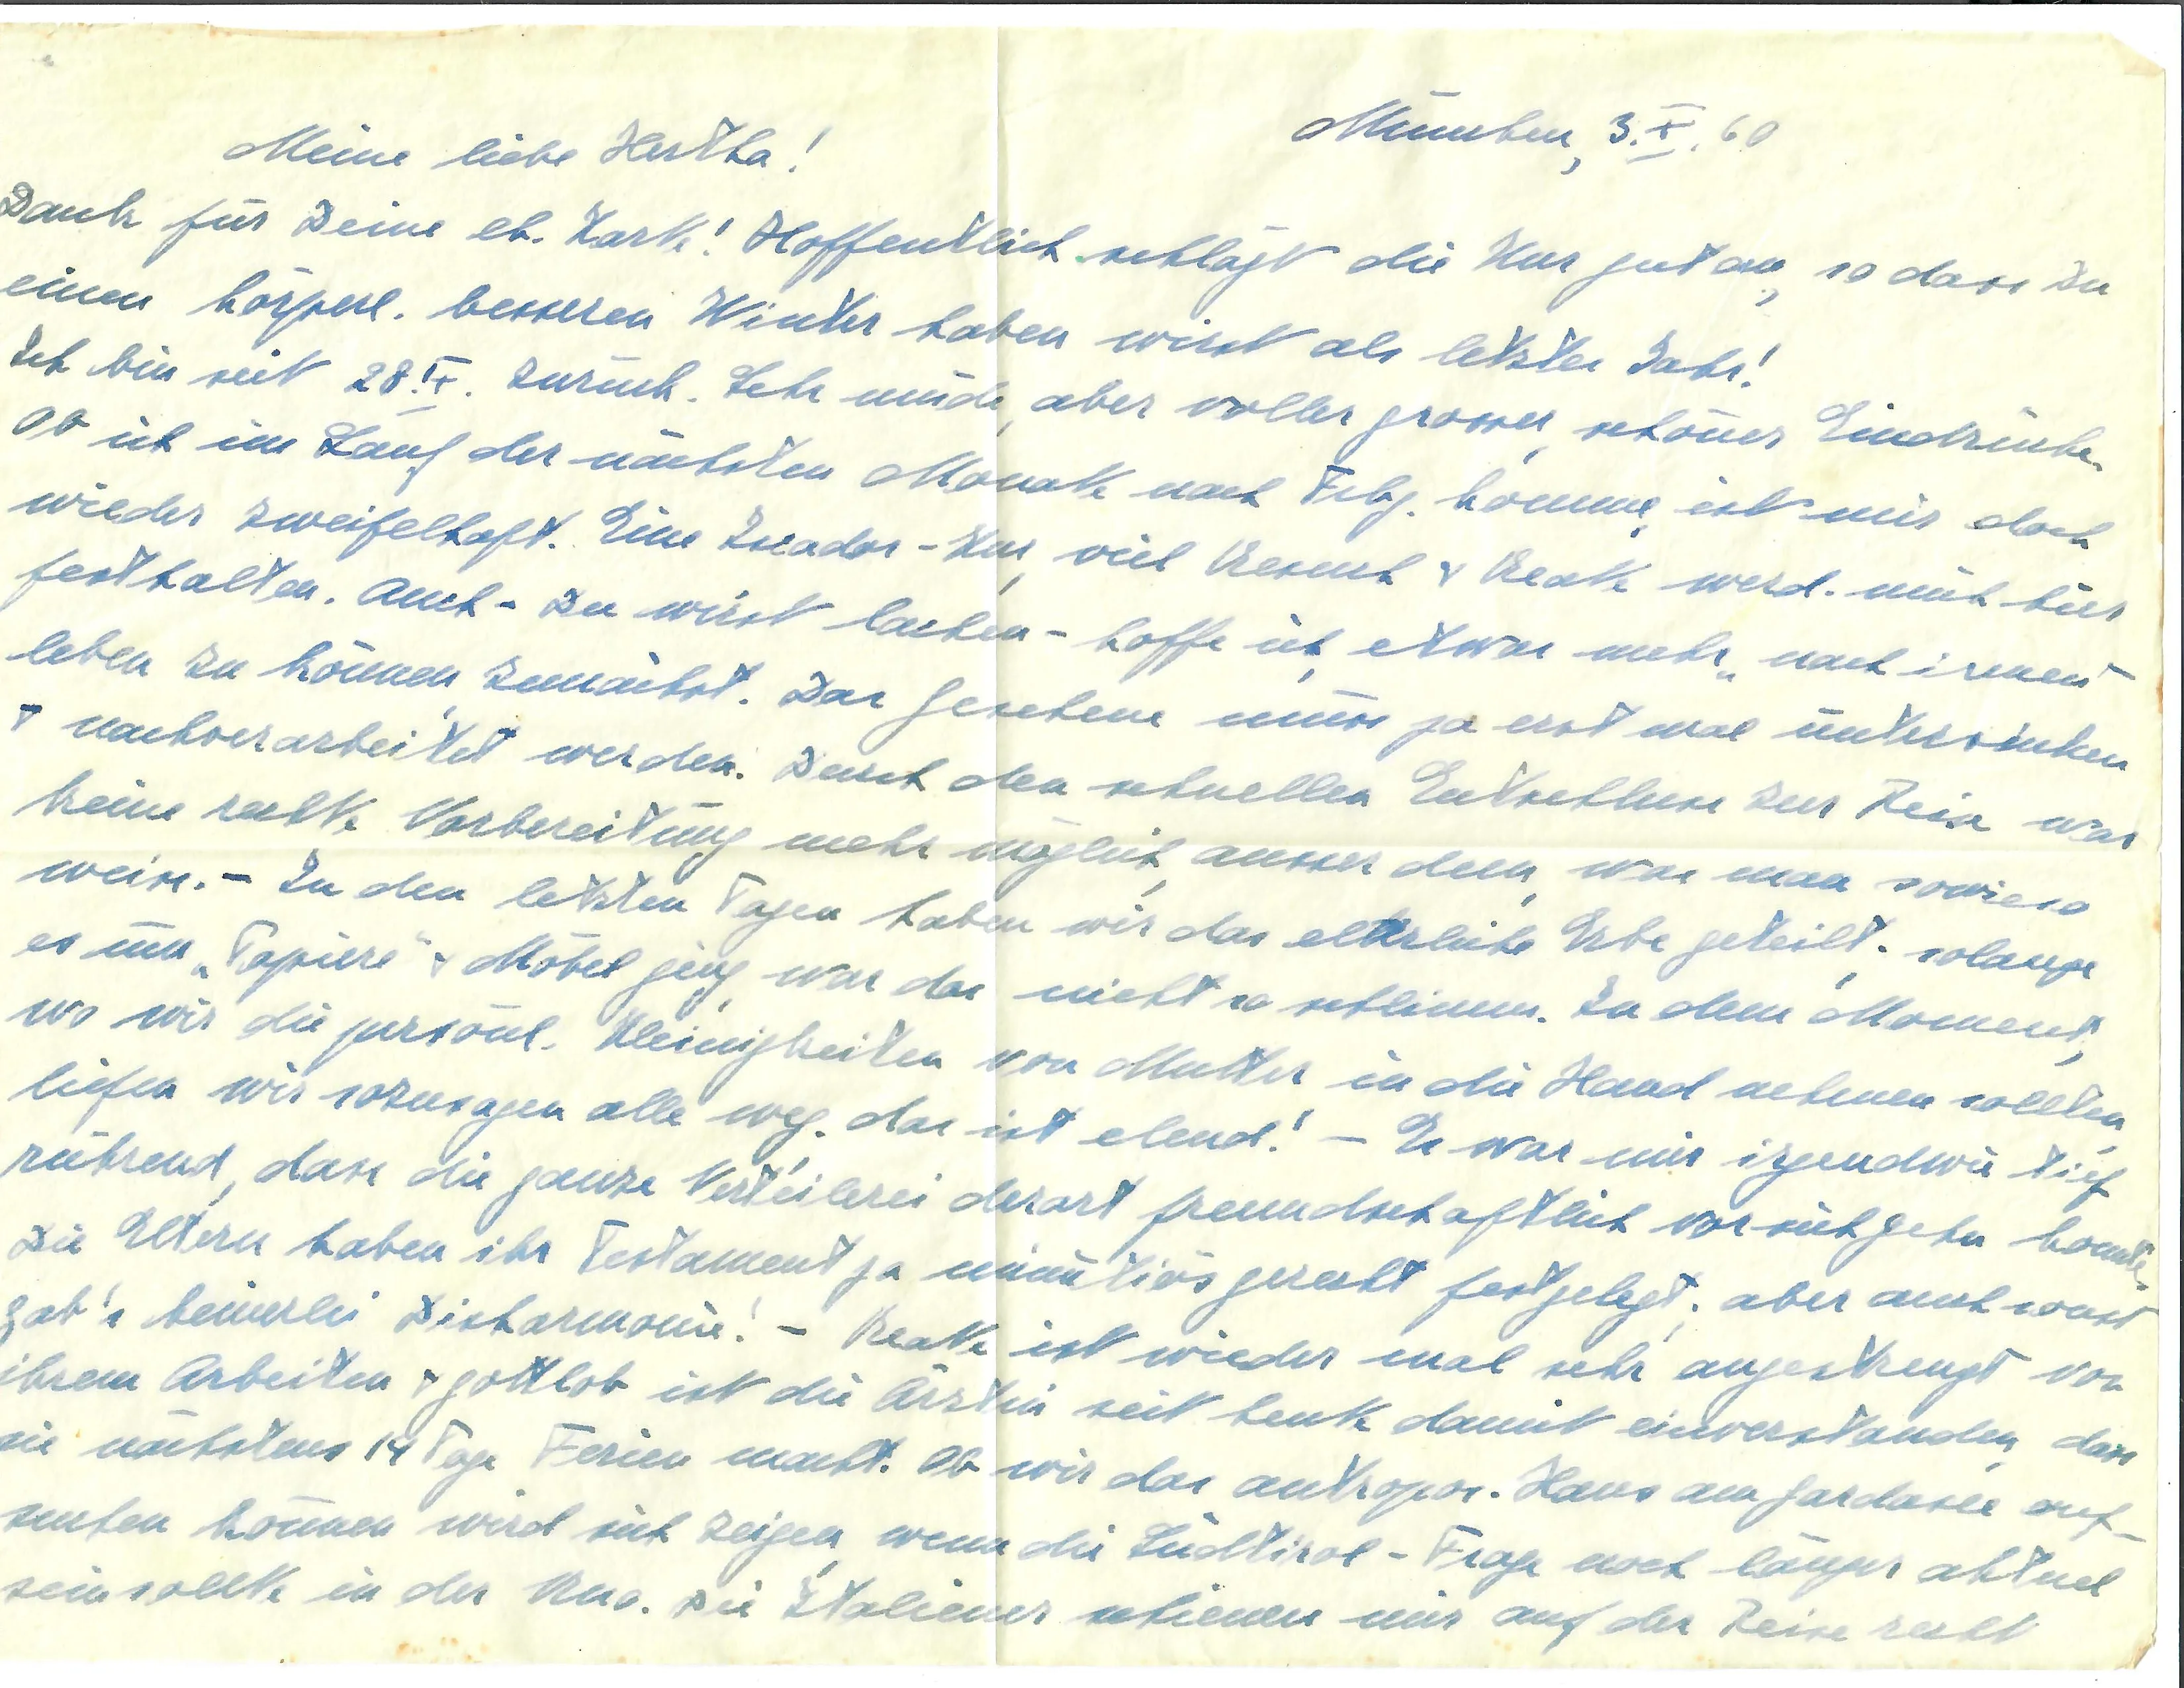 München, 3.X.60
Meine liebe Hertha!
Dank für Deine lb. Karte! Hoffentlich schlägt die Kur gut an, so dass Du
einen körperl. besseren Winter haben wirst als letztes Jahr!
Ich bin seit 28.IX. zurück. Sehr müde, aber voller grosser, schöner Eindrücke.
Ob ich im Lauf der nächsten Monate nach Frbg. komme, ist mir doch
wieder zweifelhaft. Eine -Kur, viel Besuch & Beate werd. mich hier
festhalten. Auch - Du wirst lachen - hoffe ich, etwas mehr „nach innen"
leben zu können, zunächst. Das Gesehene muss ja erst mal untersinken
& nachverarbeitet werden. Durch den schnellen Entschluss zur Reise war
keine rechte Vorbereitung mehr möglich, ausser dem, was man sowieso
weiss. - In den letzten Tagen haben wir das elterliche Erbe geteilt. solange
es um „Papiere" & Möbel ging, war das nicht so schlimm. In dem Moment,
wo wir die persönl. Kleinigkeiten von Mutter in die Hand nehmen sollten,
liefen wir sozusagen alle weg. das ist elend! - Es war mir irgendwie tief
rührend, dass die ganze Verteilerei derart freundschaftlich vor sich gehn konnte.
Die Eltern haben ihr Testament ja minutiös gerecht festgelegt; aber auch sonst
gab's keinerlei Disharmonie! - Beate ist wieder mal sehr angestrengt von
ihrem Arbeiten & gottlob ist die Ärztin seit heute damit einverstanden, dass
sie nächstens 14 Tage Ferien macht. Ob wir das antropos. Haus am Gardasee auf-
suchen können wird sich zeigen, wenn die Südtirol-Frage noch länger aktuel
sein sollte in der Uno. Die Italiener schienen mir auf der Reise recht